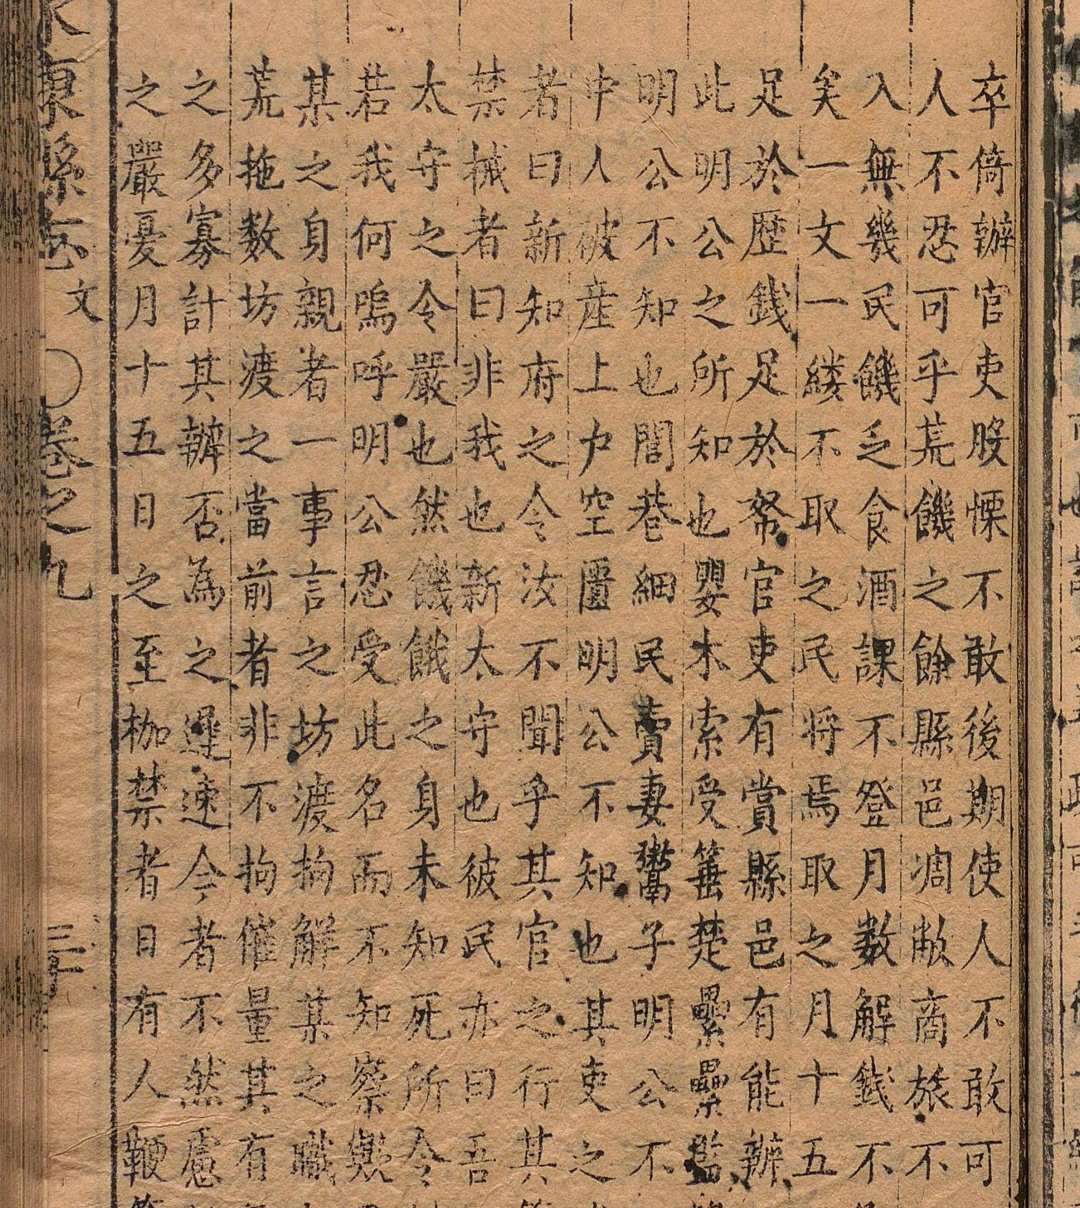 卒倚辦官吏股慄不敢後期使人不敢可
人不忍可乎荒饑之餘縣邑凋敝商旅不
入無幾民饑乏食酒課不登月數解錢不
矣一文一縷不取之民将焉取之月十五
足於歷錢足於帑官吏有賞縣邑有能辦
此明公之所知也嬰木索受箠楚纍纍
明公不知也閭巷細民賣妻鬻子明公不
中人破産上户空匱明公不知也其吏之
者曰新知府之令汝不聞乎其官之行其
禁械者曰非我也新太守也彼民亦曰吾
太守之令嚴也然饑餓之身未知死所令
若我何嗚呼明公忍受此名而不知察歟
某之身親者一事言之坊渡拘解某之職
荒拖数坊渡之當前者非不拘催量其有
之多寡計其辦否為之遲速今者不然慮
之嚴憂月十五日之至枷禁者日有人鞭
東縣志 文 〇卷之九